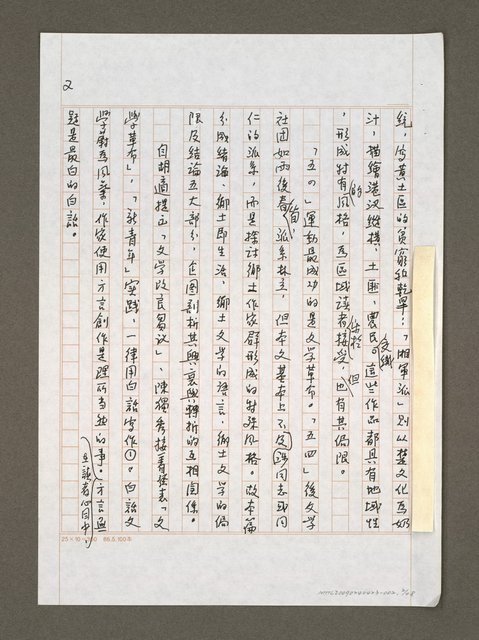 2
統，寫黃土區的貧窮和乾旱；「湘軍派」則以楚文化為奶
汁，描繪港汊縱橫、土匪、農民。這些作品都具有地域性
，形成特有的風格，為區域讀者接受，但也有其侷限。
「五四」運動最成功的是文學革命。「五四」後文學
社團如雨後春筍，派系林立，但本文基本上不同志或同
仁的派系，而是探討鄉土作家群形成的特殊風格。故本篇
分成緒論、鄉土即生活、鄉土文學的語言、鄉土文學的侷
限及結論五大部分，企圖剖析其興衰與轉折的互相關係。
自胡適提出「文學改良芻議」、陳獨秀接著發表「文
學革命」，「新青年」實踐，一律用白話寫作①。白話文
學蔚為風氣，作家使用方言創作是理所當然的事。方言與
在讀者心目中，
題是最白的白話。
25×10=250 86.5.100本